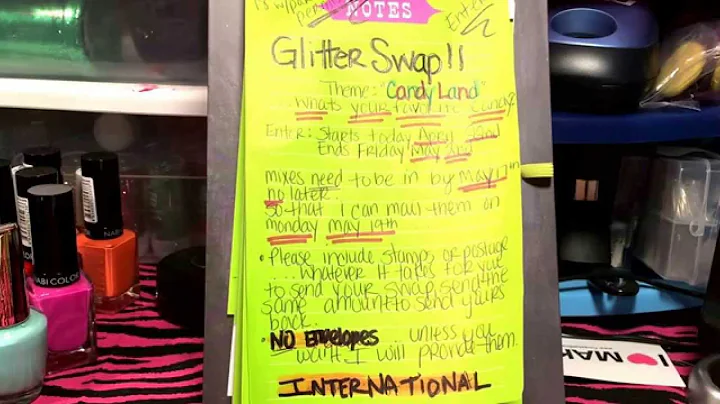 NOTES
Enter
Glitter Swap!!
Theme: "Candy Land"
...whats your favorite candy?
Enter: Starts today April 22nd
Ends Friday May 2nd
mixes need to be in by May 17th
no later.
So that I can mail them on
monday May 19th
• Please include stamps or postage
... whatever it takes for you
to send your swap, send the
same amount to send yours
back.
• NO Envelopes ... unless you
want I will provide them.
INTERNATIONAL
NABI
NABI COLOR
I ❤ MA